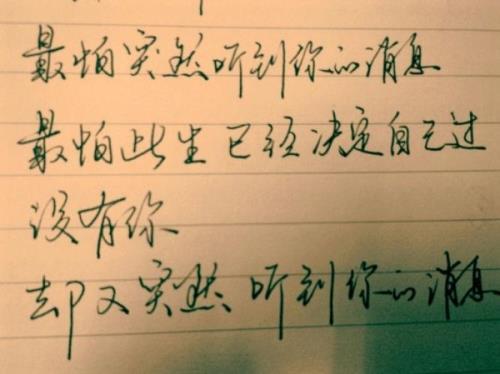 最怕突然听到你的消息
最怕此生已经决定自己过
没有你
却又突然听到你的消息